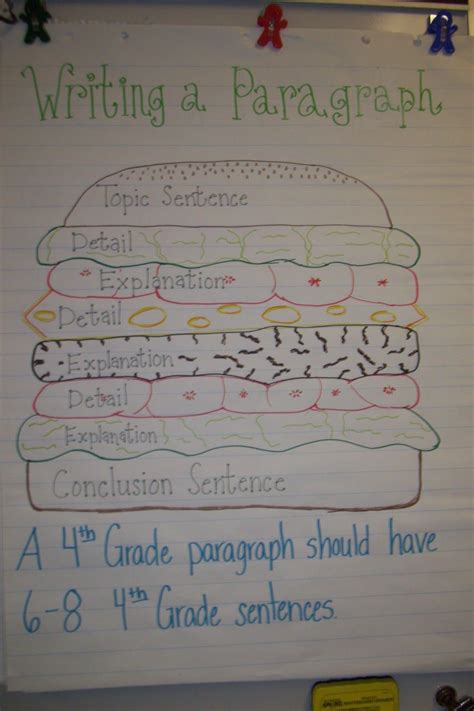 Writing a Paragraph
Topic Sentence
Detail
Explanation
Detail
Explanation
Detail
Explanation
Conclusion Sentence
A 4th Grade paragraph should have
6-8 4th Grade sentences.